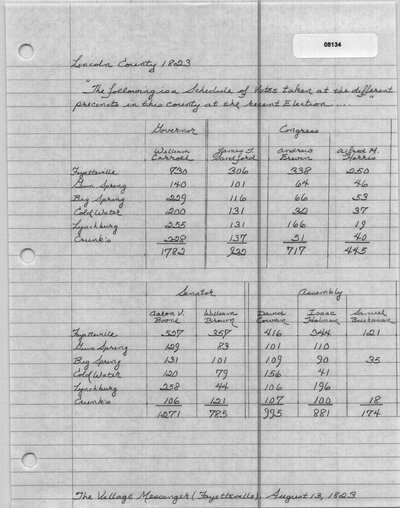 08134
Lincoln County 1823
"The following is a Schedule of Votes taken at the different
precincts in this county at the recent Election...."
Governor Congress
William James T. Andrew Alfred M.
Carroll Sandford Erwin Harris
Fayetteville 730 306 338 250
Gum Spring 140 101 64 46
Big Spring 229 116 66 53
Cold Water 200 131 32 37
Lynchburg 255 131 166 19
Crunk's 228 137 51 40
1782 922 717 445
Senator Assembly
Aaron V. William David Isaac Samuel
Boone Brown Cowan Holman Buchanan
Fayetteville 527 357 416 344 121
Gum Spring 129 83 101 110
Big Spring 131 101 109 90 35
Cold Water 120 79 156 41
Lynchburg 258 44 106 196
Crunk's 106 121 107 100 18
1271 785 995 881 174
The Village Messenger (Fayetteville). August 13, 1823